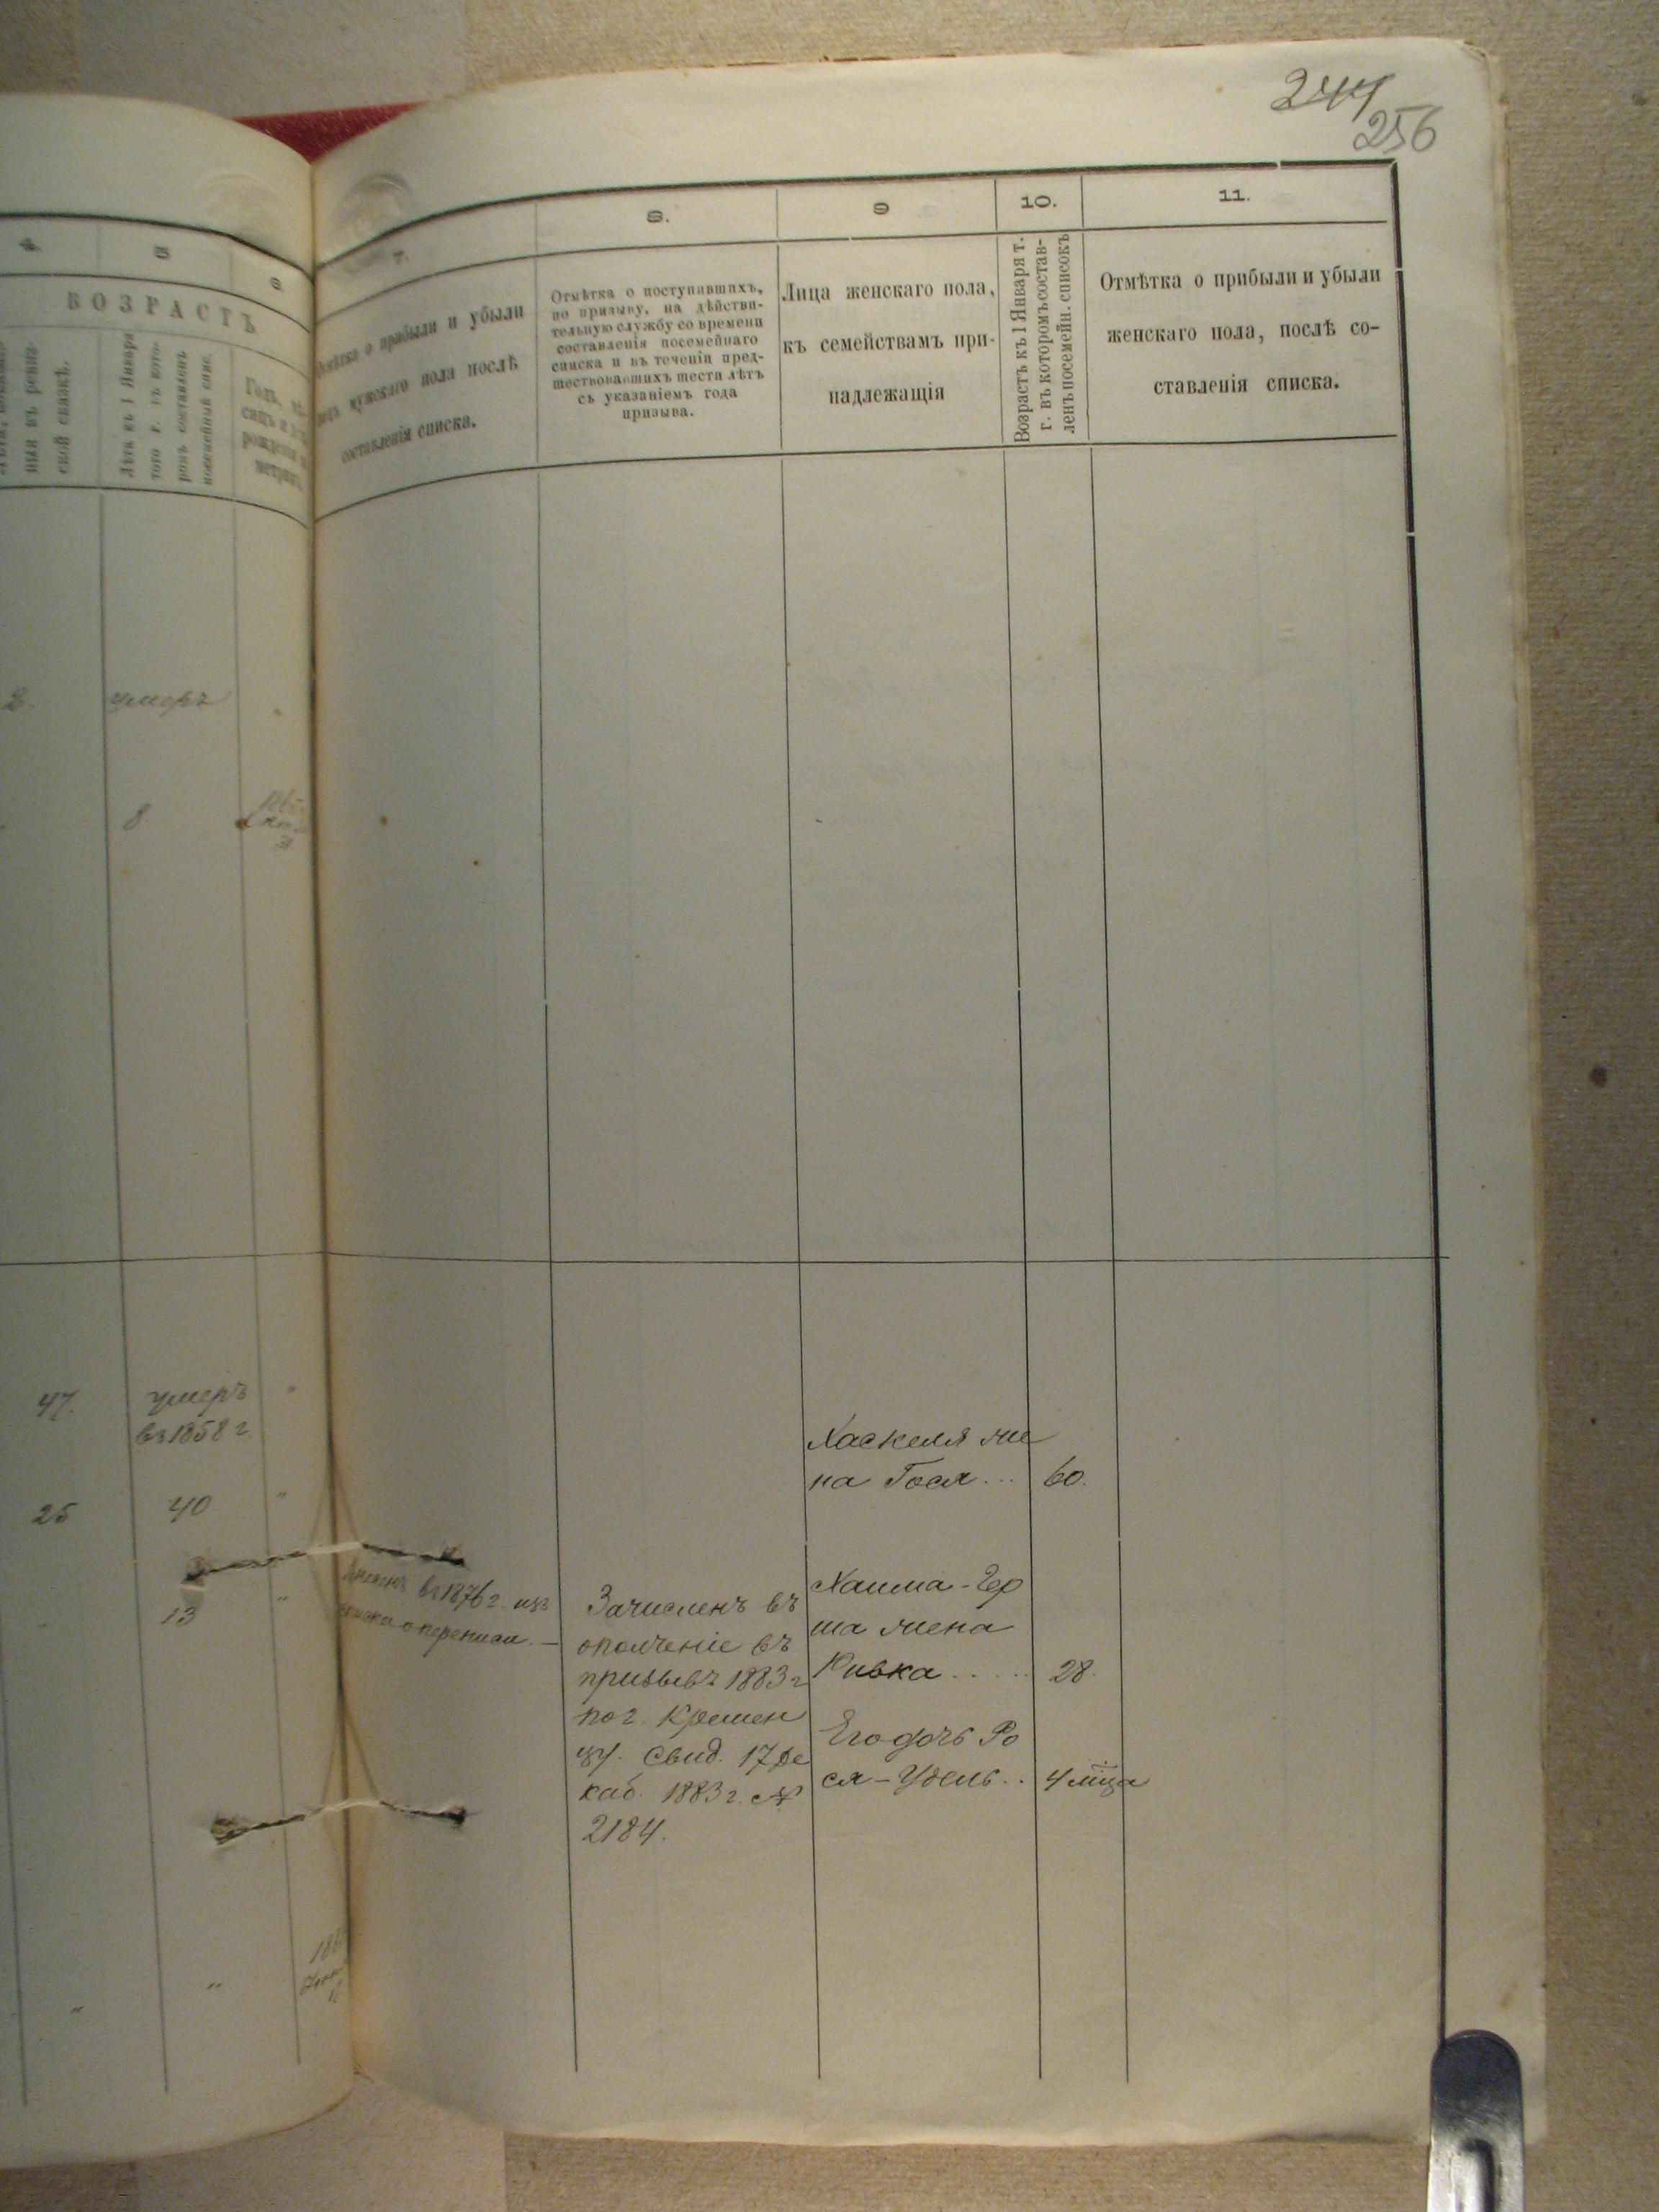 244
256
4.
5
6
ВОЗРАСТЪ
ныя въ ревиз-
ской сказкѣ.
Лѣта къ 1 Января
того г. въ кото-
ромъ составленъ
посемейный спис.
Годъ, мѣ-
сяцъ и
рожденія
метрик.
2.
умеръ
8
47.
умеръ
въ 1858 г
25
40
13
7.
Отмѣтка о прибыли и убыли
лицъ мужскаго пола послѣ
составленія списка.
8.
Отмѣтка о поступившихъ,
по призыву, на дѣйстви-
тельную службу со времени
составленія посемейнаго
списка и въ теченіи пред-
шествовавшихъ шести лѣтъ
съ указаніемъ года
призыва.
9
Лица женскаго пола,
къ семействамъ при-
надлежащія
10.
Возрастъ къ 1 Января т.
г. въ которомъ состав-
ленъ посемейн. списокъ
11.
Отмѣтка о прибыли и убыли
женскаго пола, послѣ со-
ставленія списка.
въ 1876 г. изъ
о переписи. —
Зачисленъ въ
ополченіе въ
призывъ 1883 г
по г. Кремен
цу. Свид. 17 Де
каб. 1883 г. №
2184.
Хаскеля же
на Гося ... 60.
Хаима-Гер
ша жена
Ривка ..... 28.
Его дочь Ро
ся-Удель .. 4 мца